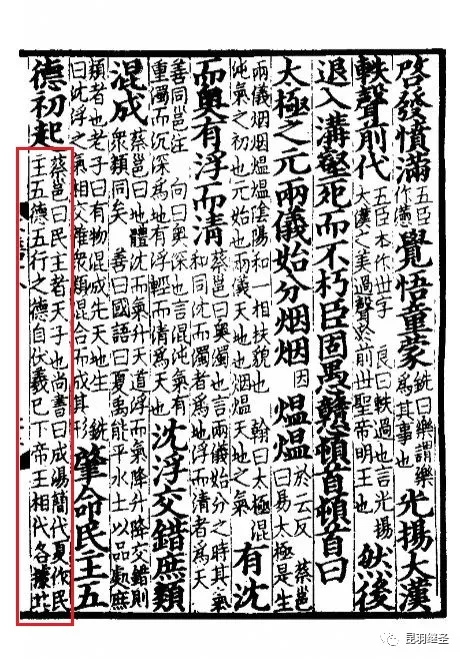 啓發憤滿五臣作懣覺悟童蒙銑曰樂謂樂為其事也光揚大漢
軼聲前代五臣本作世字 良曰軼過也言光揚大漢之美過聲於前世聖帝明王也然後
退入溝壑死而不朽臣固愚戇頓首頓首曰
太極之元兩儀始分烟烟因熅熅於云反 蔡邕曰易曰太極是生
兩儀烟烟熅熅陰陽和一相扶貌也 翰曰太極混沌氣之初也元始也兩儀天地也烟熅天地之氣也有沈
而奧有浮而清蔡邕曰奧濁也言兩儀始分之時其氣和同沈而濁者為地浮而清者為天
善同邕注 向曰奧深也言混沌氣有重濁而沉深為地有浮輕而清為天也沈浮交錯庶類
混成蔡邕曰地體沈而氣升天道浮而氣降升降交錯則衆類同矣 善曰國語曰夏禹能平水土以品處庶
類者也老子曰有物混成先天地生 銑曰沈浮之氣相交雜衆類混合而成其形肇命民主五
德初起蔡邕曰民主者天子也尚書曰成湯簡代夏作民主五德五行之德自伏羲已下帝王相代各據其一
昆羽继圣